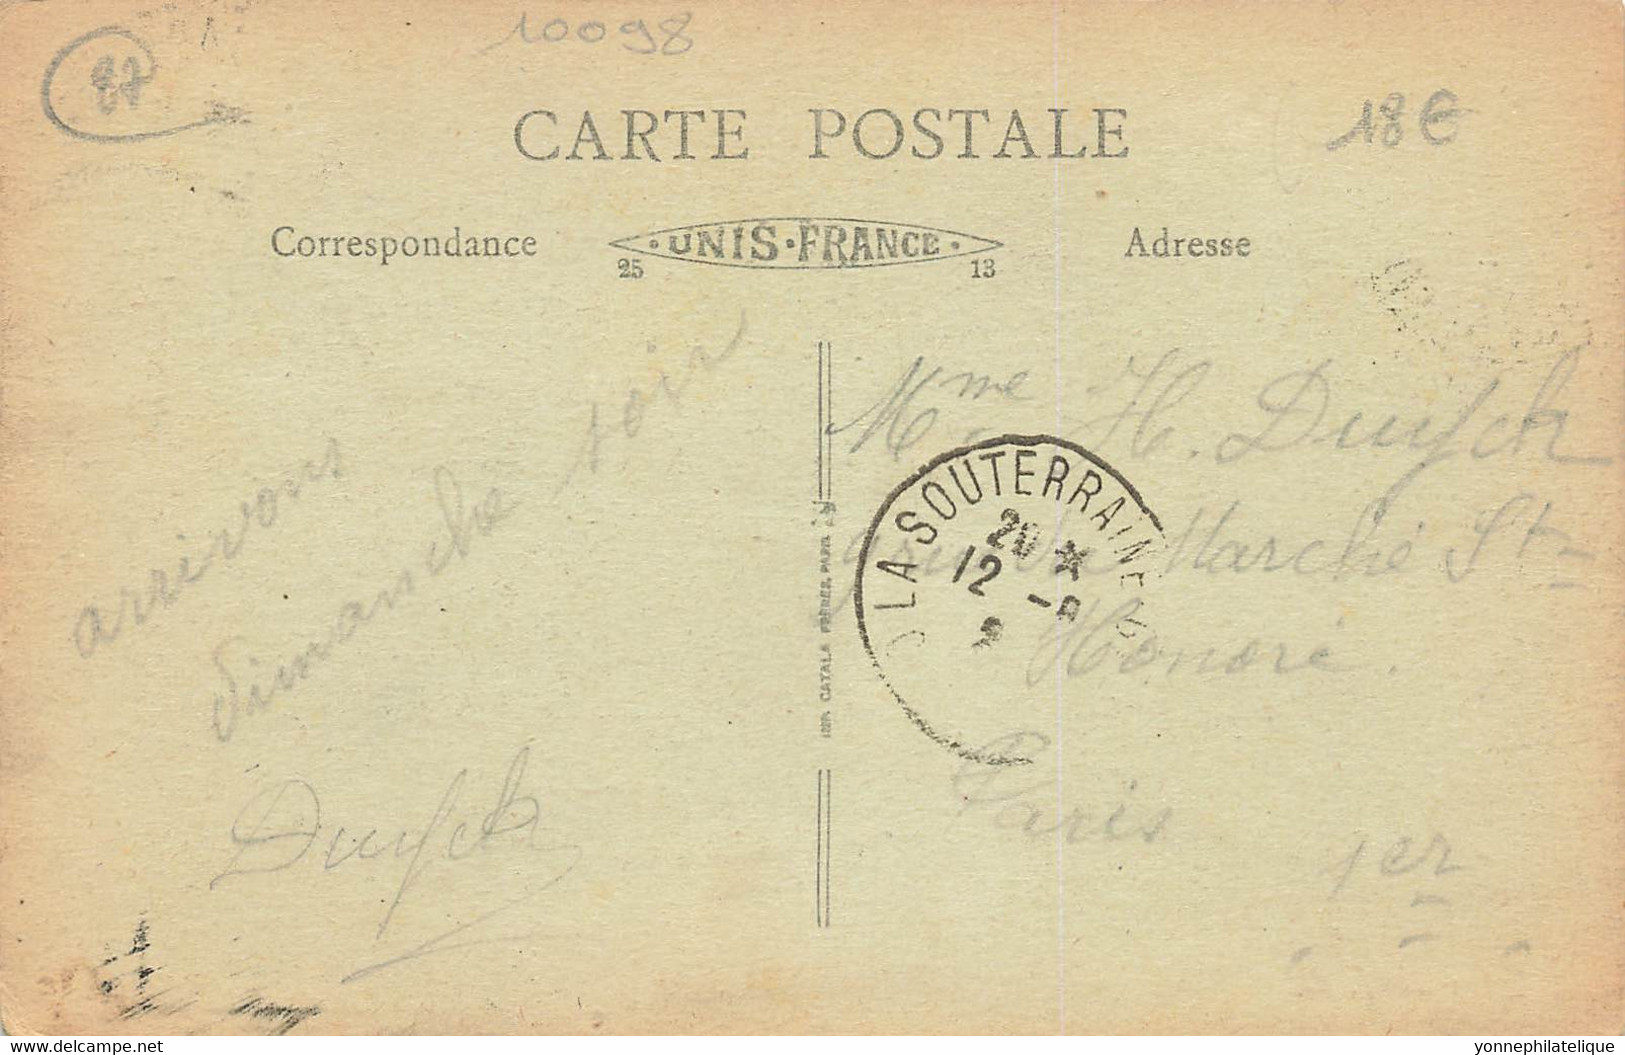 10098
87
18€
CARTE POSTALE
Correspondance
·UNIS·FRANCE·
25 13
Adresse
arrivons
dimanche soir
Duysch
Mme H. Duysch
rue du Marché St
Honoré.
Paris
1er
LA SOUTERRAINE
20 *
12 -8
IMP. CATALA FRÈRES, PARIS
delcampe.net
yonnephilatelique